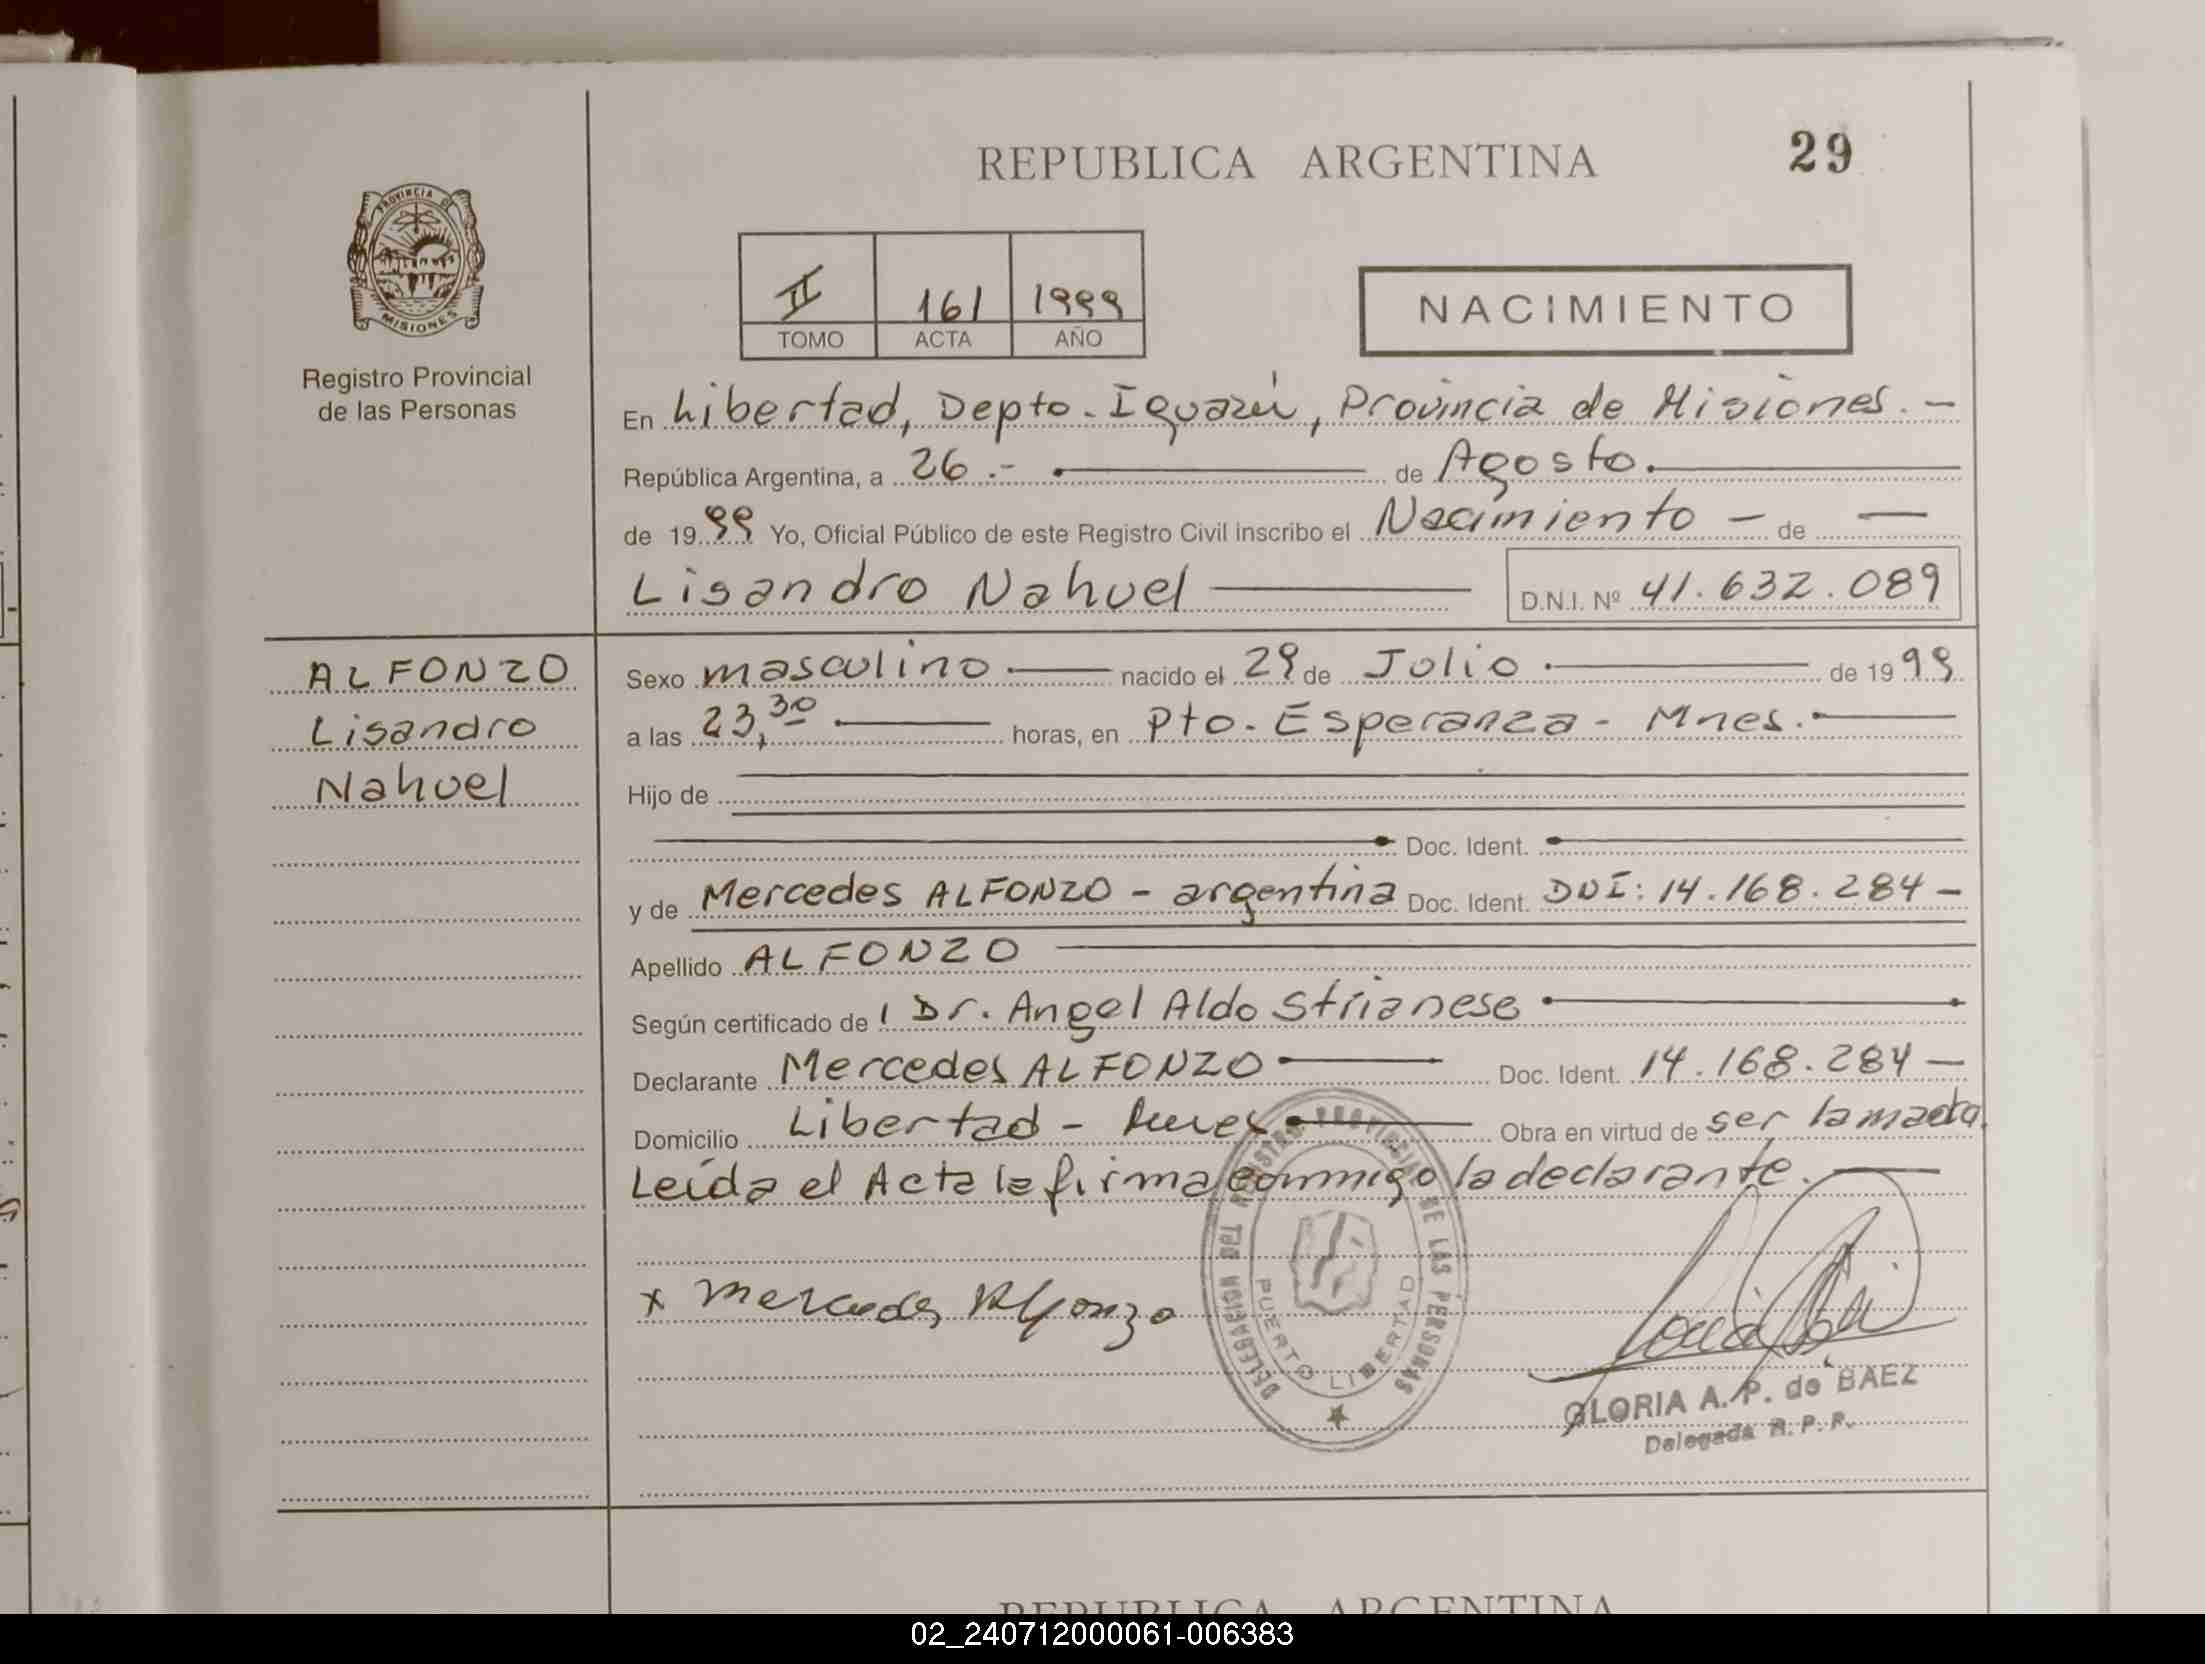 REPUBLICA ARGENTINA
29
PROVINCIA D
MISIONES
Registro Provincial
de las Personas
II 161 1999
TOMO ACTA AÑO
NACIMIENTO
En Libertad, Depto. Iguazú, Provincia de Misiones. -
República Argentina, a 26.- de Agosto.
de 1999 Yo, Oficial Público de este Registro Civil inscribo el Nacimiento - de —
Lisandro Nahuel
D.N.I. Nº 41.632.089
ALFONZO
Lisandro
Nahuel
Sexo masculino nacido el 29 de Julio de 1999
a las 23,30 horas, en Pto. Esperanza - Mnes.
Hijo de
Doc. Ident.
y de Mercedes ALFONZO - argentina Doc. Ident. DNI: 14.168.284 -
Apellido ALFONZO
Según certificado de l Dr. Angel Aldo Strianese
Declarante Mercedes ALFONZO Doc. Ident. 14.168.284 —
Domicilio Libertad - Mnes Obra en virtud de ser la madre.
Leída el Acta la firma conmigo la declarante.
x Mercedes Alfonzo
DELEGACION DEL REGISTRO PROVINCIAL DE LAS PERSONAS
PUERTO LIBERTAD
GLORIA A. P. de BAEZ
Delegada R. P. P.
REPUBLICA ARGENTINA
02_240712000061-006383